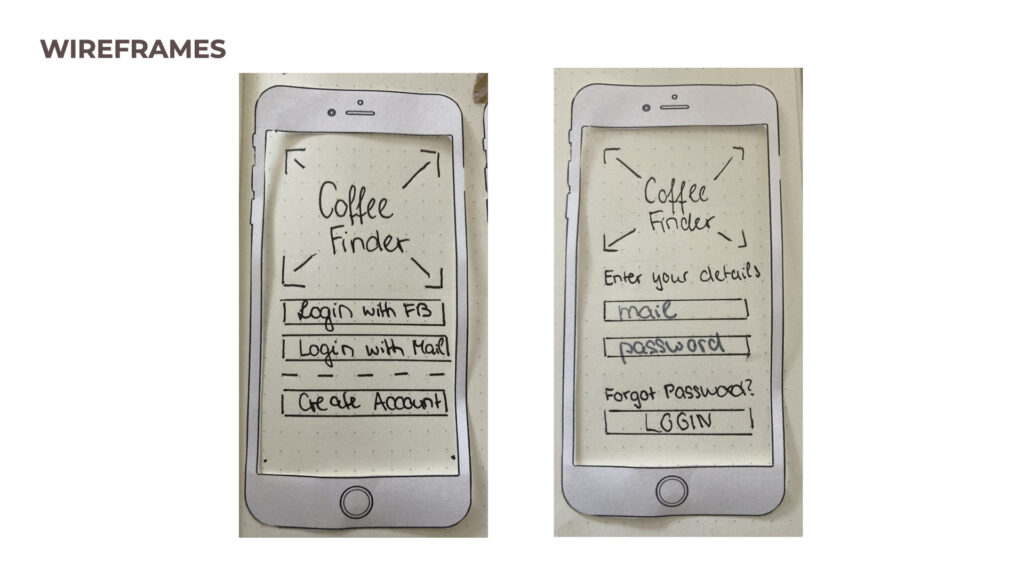 WIREFRAMES
Coffee
Finder
Login with FB
Login with Mail
Create Account
Coffee
Finder
Enter your details
mail
password
Forgot Password?
LOGIN